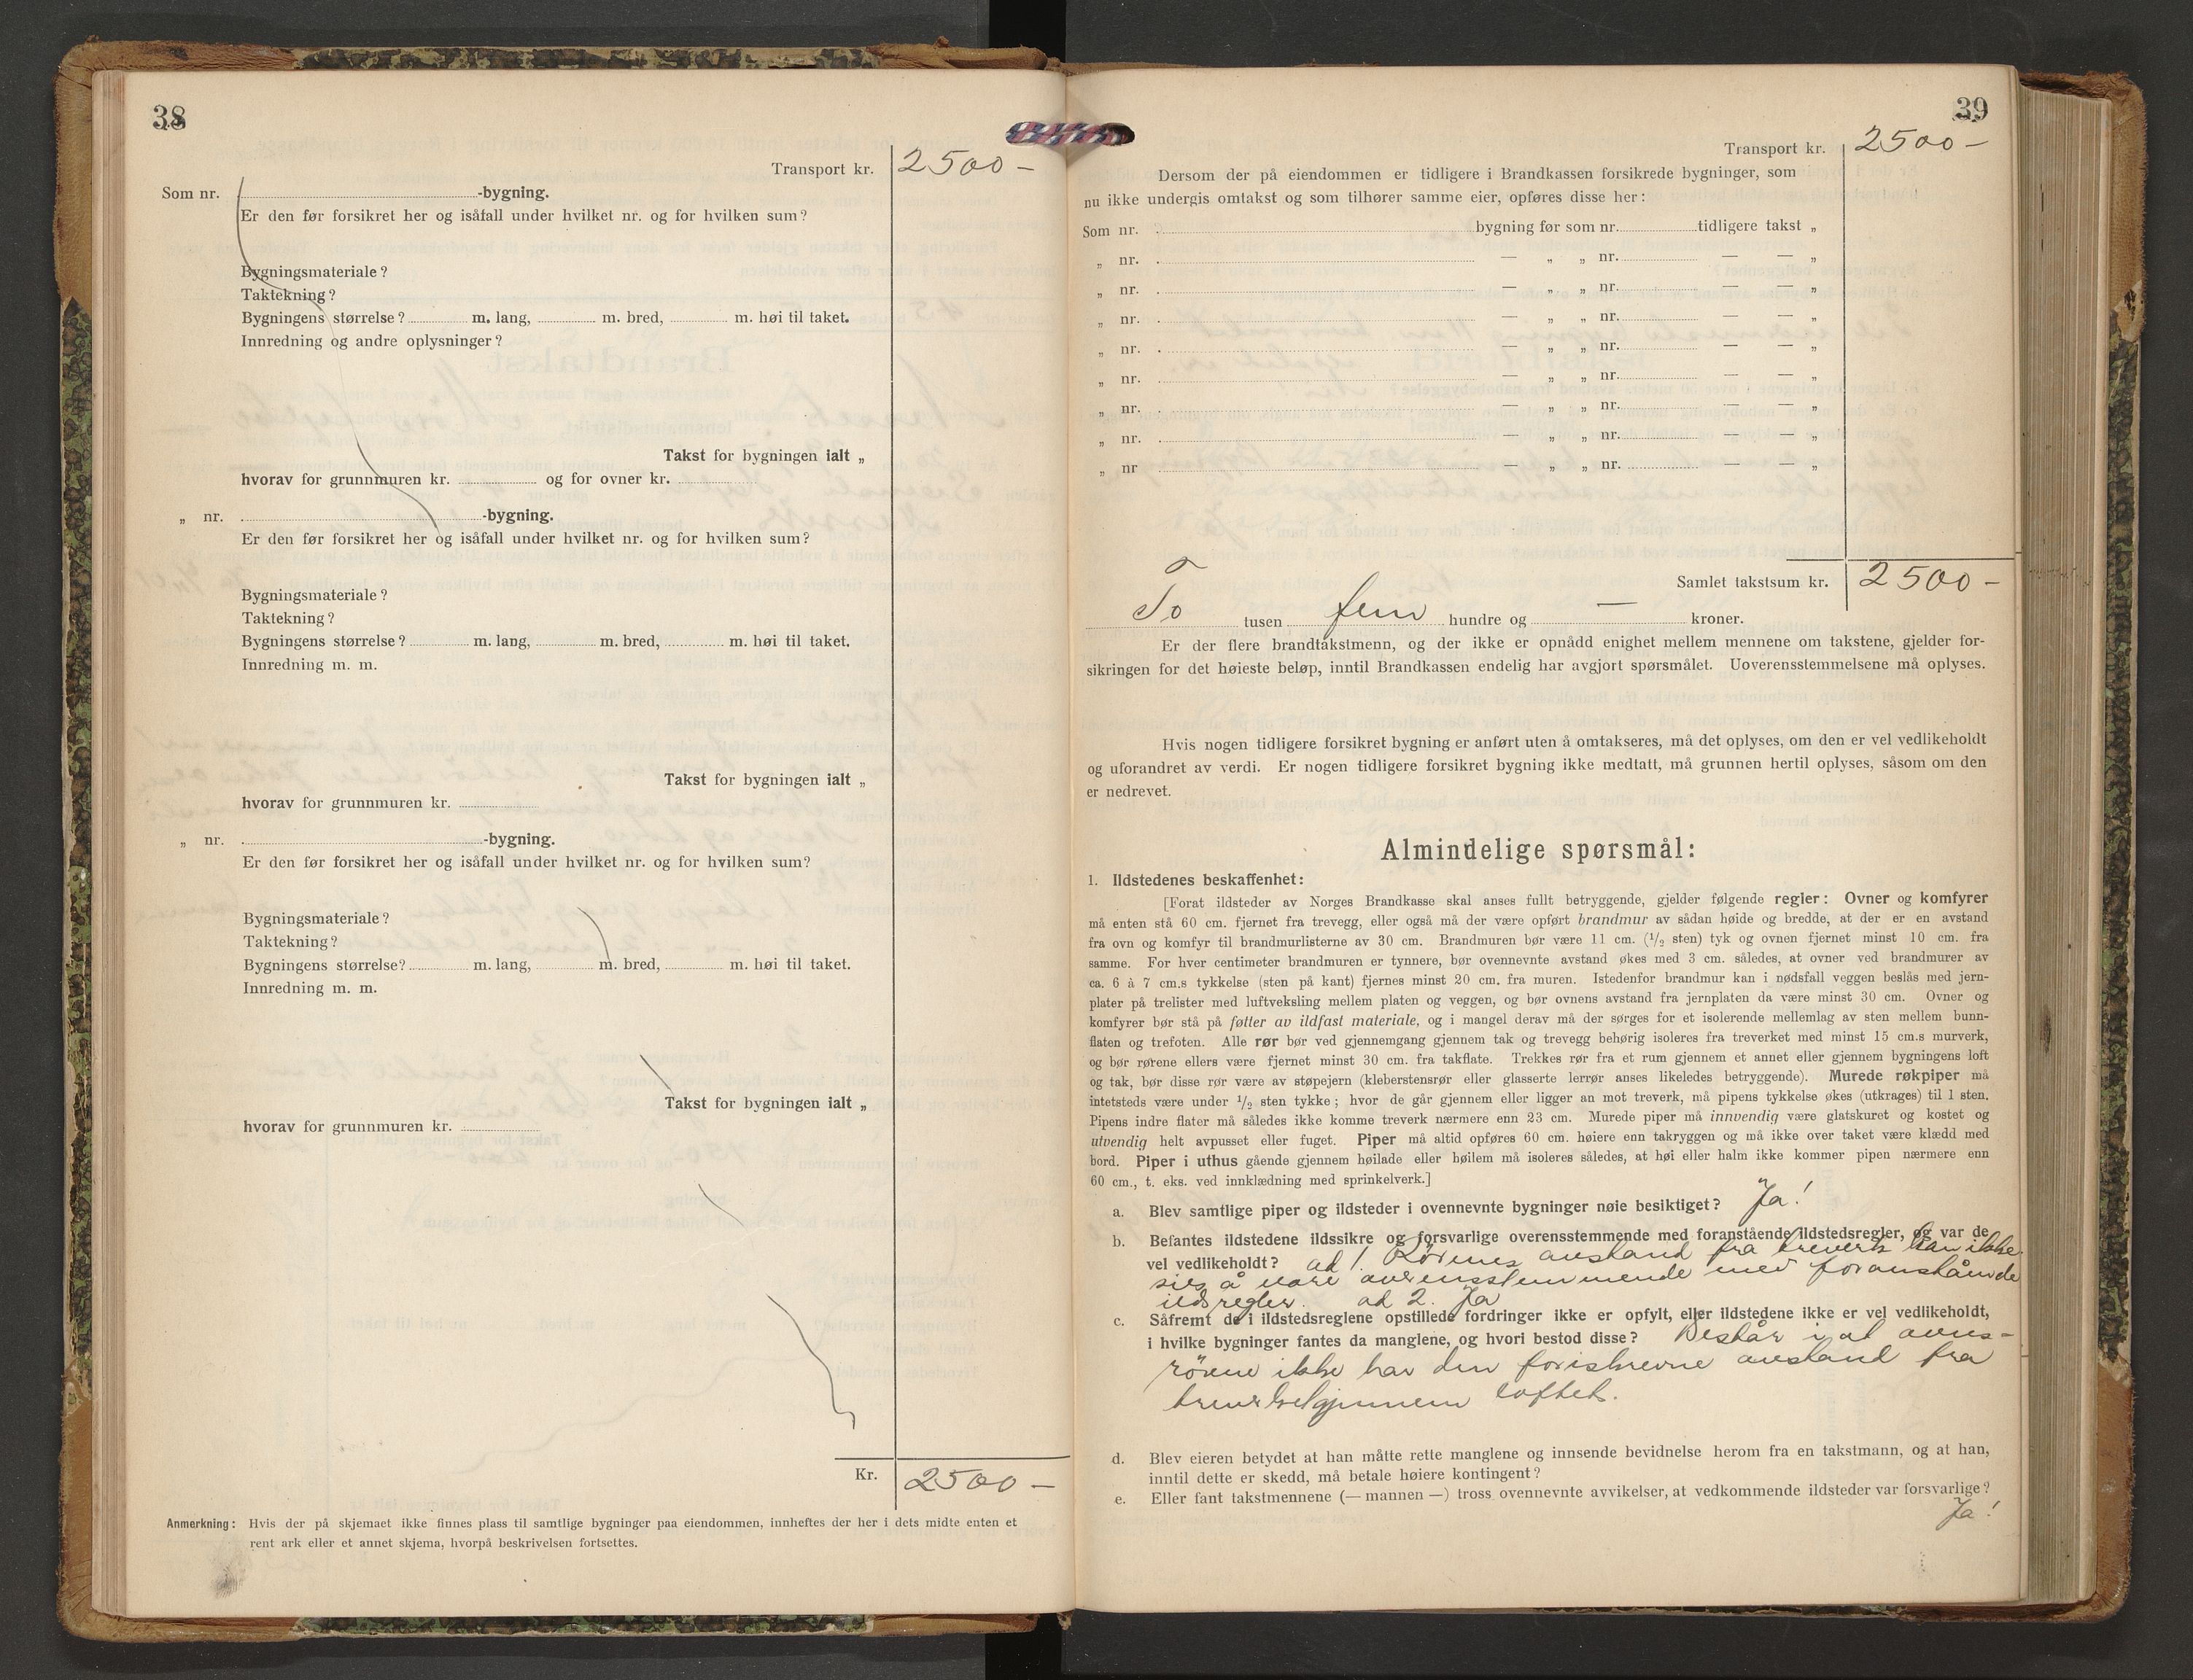 38
Transport kr. 2500 –
Som nr. -bygning.
Er den før forsikret her og isåfall under hvilket nr. og for hvilken sum?
Bygningsmateriale?
Taktekning?
Bygningens størrelse? m. lang, m. bred, m. høi til taket.
Innredning og andre oplysninger?
Takst for bygningen ialt „
hvorav for grunnmuren kr. og for ovner kr.
„ nr. -bygning.
Er den før forsikret her og isåfall under hvilket nr. og for hvilken sum?
Bygningsmateriale?
Taktekning?
Bygningens størrelse? m. lang, m. bred, m. høi til taket.
Innredning m. m.
Takst for bygningen ialt „
hvorav for grunnmuren kr.
„ nr. -bygning.
Er den før forsikret her og isåfall under hvilket nr. og for hvilken sum?
Bygningsmateriale?
Taktekning?
Bygningens størrelse? m. lang, m. bred, m. høi til taket.
Innredning m. m.
Takst for bygningen ialt „
hvorav for grunnmuren kr.
Kr. 2500 –
Anmerkning: Hvis der på skjemaet ikke finnes plass til samtlige bygninger paa eiendommen, innheftes der her i dets midte enten et
rent ark eller et annet skjema, hvorpå beskrivelsen fortsettes.
39
Transport kr. 2500 –
Dersom der på eiendommen er tidligere i Brandkassen forsikrede bygninger, som
nu ikke undergis omtakst og som tilhører samme eier, opføres disse her:
Som nr. bygning før som nr. tidligere takst „
„ nr. — „ „ nr. — — „
„ nr. — „ „ nr. — — „
„ nr. — „ „ nr. — — „
„ nr. — „ „ nr. — — „
„ nr. — „ „ nr. — — „
„ nr. — „ „ nr. — — „
„ nr. — „ „ nr. — — „
„ nr — „ „ nr. — — „
Samlet takstsum kr. 2500 –
To tusen fem hundre og — kroner.
Er der flere brandtakstmenn, og der ikke er opnådd enighet mellem mennene om takstene, gjelder for-
sikringen for det høieste beløp, inntil Brandkassen endelig har avgjort spørsmålet. Uoverensstemmelsene må oplyses.
Hvis nogen tidligere forsikret bygning er anført uten å omtakseres, må det oplyses, om den er vel vedlikeholdt
og uforandret av verdi. Er nogen tidligere forsikret bygning ikke medtatt, må grunnen hertil oplyses, såsom om den
er nedrevet.
Almindelige spørsmål:
1. Ildstedenes beskaffenhet:
[Forat ildsteder av Norges Brandkasse skal anses fullt betryggende, gjelder følgende regler: Ovner og komfyrer
må enten stå 60 cm. fjernet fra trevegg, eller også må der være opført brandmur av sådan høide og bredde, at der er en avstand
fra ovn og komfyr til brandmurlisterne av 30 cm. Brandmuren bør være 11 cm. (1/2 sten) tyk og ovnen fjernet minst 10 cm. fra
samme. For hver centimeter brandmuren er tynnere, bør ovennevnte avstand økes med 3 cm. således, at ovner ved brandmurer av
ca. 6 à 7 cm.s tykkelse (sten på kant) fjernes minst 20 cm. fra muren. Istedenfor brandmur kan i nødsfall veggen beslås med jern-
plater på trelister med luftveksling mellem platen og veggen, og bør ovnens avstand fra jernplaten da være minst 30 cm. Ovner og
komfyrer bør stå på føtter av ildfast materiale, og i mangel derav må der sørges for et isolerende mellemlag av sten mellem bunn-
flaten og trefoten. Alle rør bør ved gjennemgang gjennem tak og trevegg behørig isoleres fra treverket med minst 15 cm.s murverk,
og bør rørene ellers være fjernet minst 30 cm. fra takflate. Trekkes rør fra et rum gjennem et annet eller gjennem bygningens loft
og tak, bør disse rør være av støpejern (kleberstensrør eller glasserte lerrør anses likeledes betryggende). Murede røkpiper må
intetsteds være under 1/2 sten tykke; hvor de går gjennem eller ligger an mot treverk, må pipens tykkelse økes (utkrages) til 1 sten.
Pipens indre flater må således ikke komme treverk nærmere enn 23 cm. Murede piper må innvendig være glatskuret og kostet og
utvendig helt avpusset eller fuget. Piper må altid opføres 60 cm. høiere enn takryggen og må ikke over taket være klædd med
bord. Piper i uthus gående gjennem høilade eller høilem må isoleres således, at høi eller halm ikke kommer pipen nærmere enn
60 cm., t. eks. ved innklædning med sprinkelverk.]
a. Blev samtlige piper og ildsteder i ovennevnte bygninger nøie besiktiget? Ja!
b. Befantes ildstedene ildssikre og forsvarlige overensstemmende med foranstående ildstedsregler, og var de
vel vedlikeholdt? ad 1. Rörenes avstand fra treverk kan ikke
sies å være overensstemmende med foranstående
ildsregler. ad 2. Ja
c. Såfremt de i ildstedsreglene opstillede fordringer ikke er opfylt, eller ildstedene ikke er vel vedlikeholdt,
i hvilke bygninger fantes da manglene, og hvori bestod disse? Består i at ovns-
rörene ikke har den foriskrevne avstand fra
treverket gjennem loftet.
d. Blev eieren betydet at han måtte rette manglene og innsende bevidnelse herom fra en takstmann, og at han,
inntil dette er skedd, må betale høiere kontingent?
e. Eller fant takstmennene (— mannen —) tross ovennevnte avvikelser, at vedkommende ildsteder var forsvarlige?
Ja!